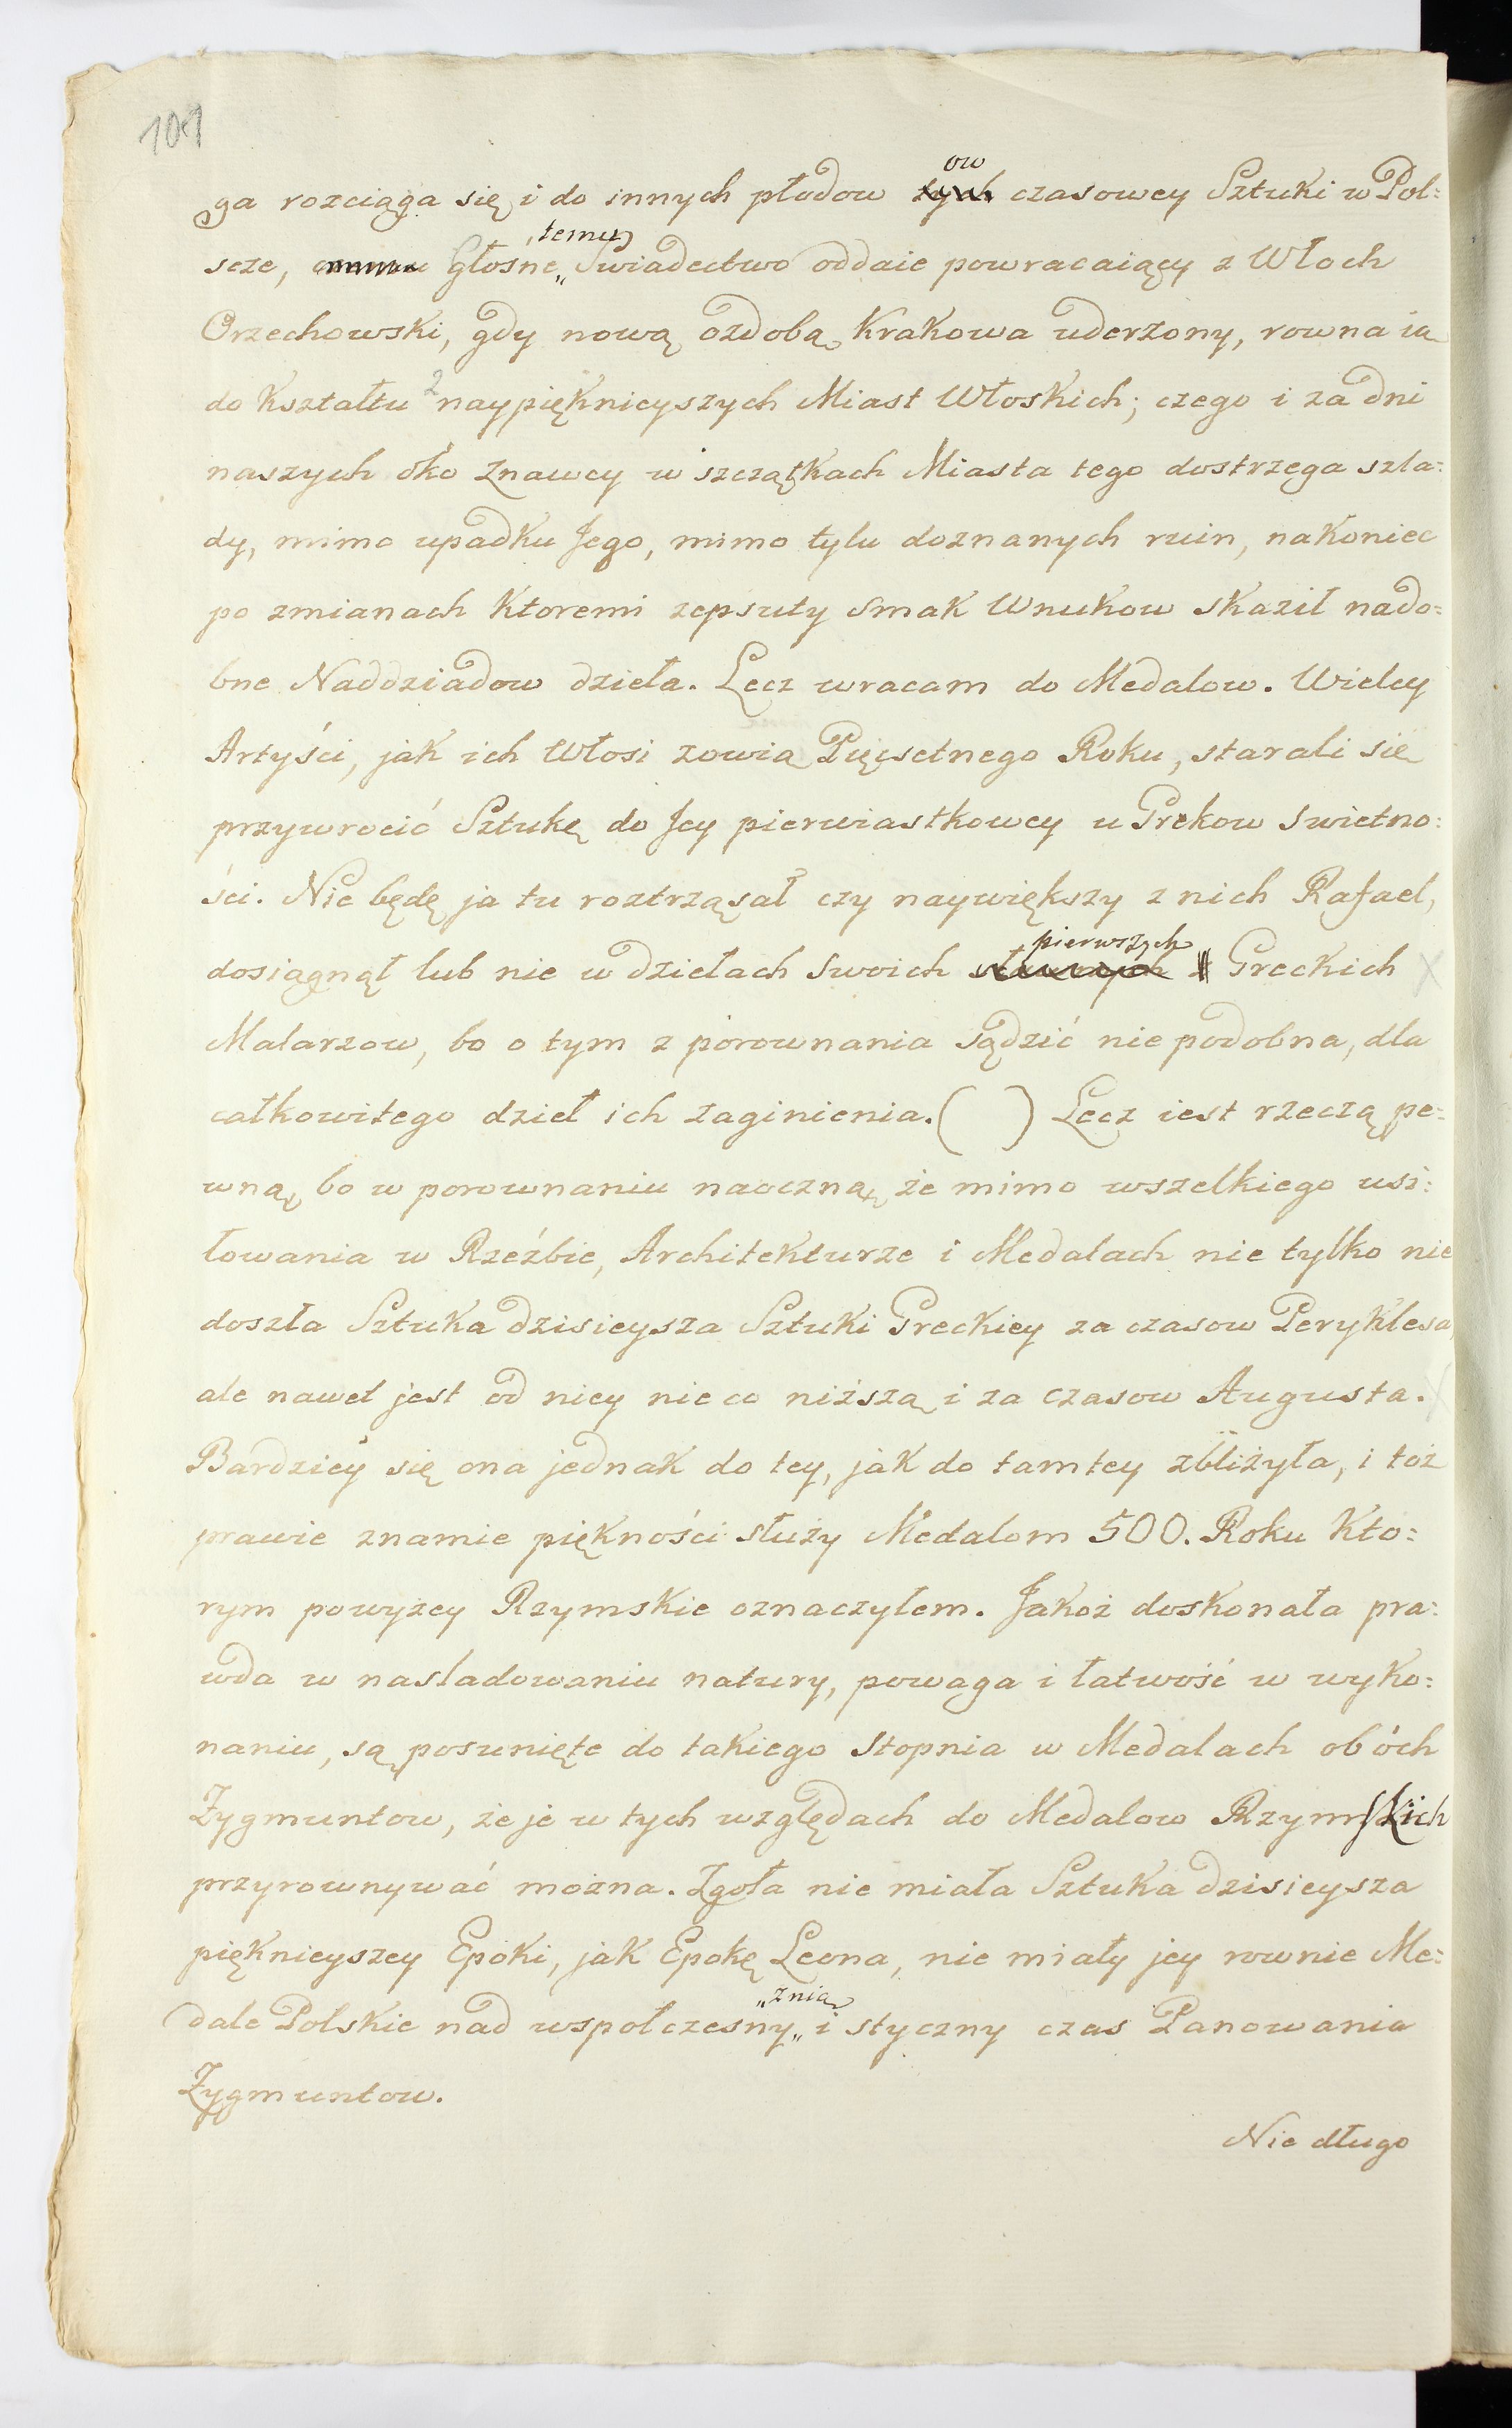 101
ga rozciąga się i do innych płodow tych ow czasowey Sztuki w Pol=
scze, Głosne „temu Swiadectwo oddaie powracaiący z Włoch
Orzechowski, gdy nową ozdobą Krakowa uderzony, rowna ią
do Kształtu naypięknieyszych Miast Włoskich; czego i za dni
naszych oko Znawcy w szczątkach Miasta tego dostrzega szla=
dy, mimo upadku Jego, mimo tylu doznanych ruin, nakoniec
po zmianach Ktoremi zepsuty Smak Wnukow Skaził nado=
bne Naddziadow dzieła. Lecz wracam do Medalow. Wielcy
Artyści, jak ich Włosi zowią Pięcsetnego Roku, starali się
przywrocić Sztukę do Jey pierwiastkowey u Grekow Swietno=
ści. Nie będę ja tu roztrząsał czy naywiększy z nich Rafael,
dosiągnął lub nie w dziełach Swoich pierwszych Greckich
Malarzow, bo o tym z porownania sądzić nie podobna, dla
całkowitego dzieł ich zaginienia. ( ) Lecz iest rzeczą pe=
wną, bo w porownaniu naoczną, że mimo wszelkiego usi=
łowania w Rzeźbie, Architekturze i Medalach nie tylko nie
doszła Sztuka dzisieysza Sztuki Greckiey za czasow Peryklesa,
ale nawet jest od niey nieco niższą i za czasow Augusta.
Bardziey się ona jednak do tey, jak do tamtey zbliżyła, i toż
prawie znamie piękności służy Medalom 500. Roku Kto=
rym powyżey Rzymskie oznaczyłem. Jakoż doskonała pra=
wda w nasladowaniu natury, powaga i łatwość w wyko=
naniu, są posunięte do takiego Stopnia w Medalach obóch
Zygmuntow, że je w tych względach do Medalow Rzymskich
przyrownywać można. Zgoła nie miała Sztuka dzisieysza
pięknieyszey Epoki, jak Epokę Leona, nie miały jey rownie Me=
dale Polskie nad wspołczesny „z nią i styczny czas Panowania
Zygmuntow.
Nie długo